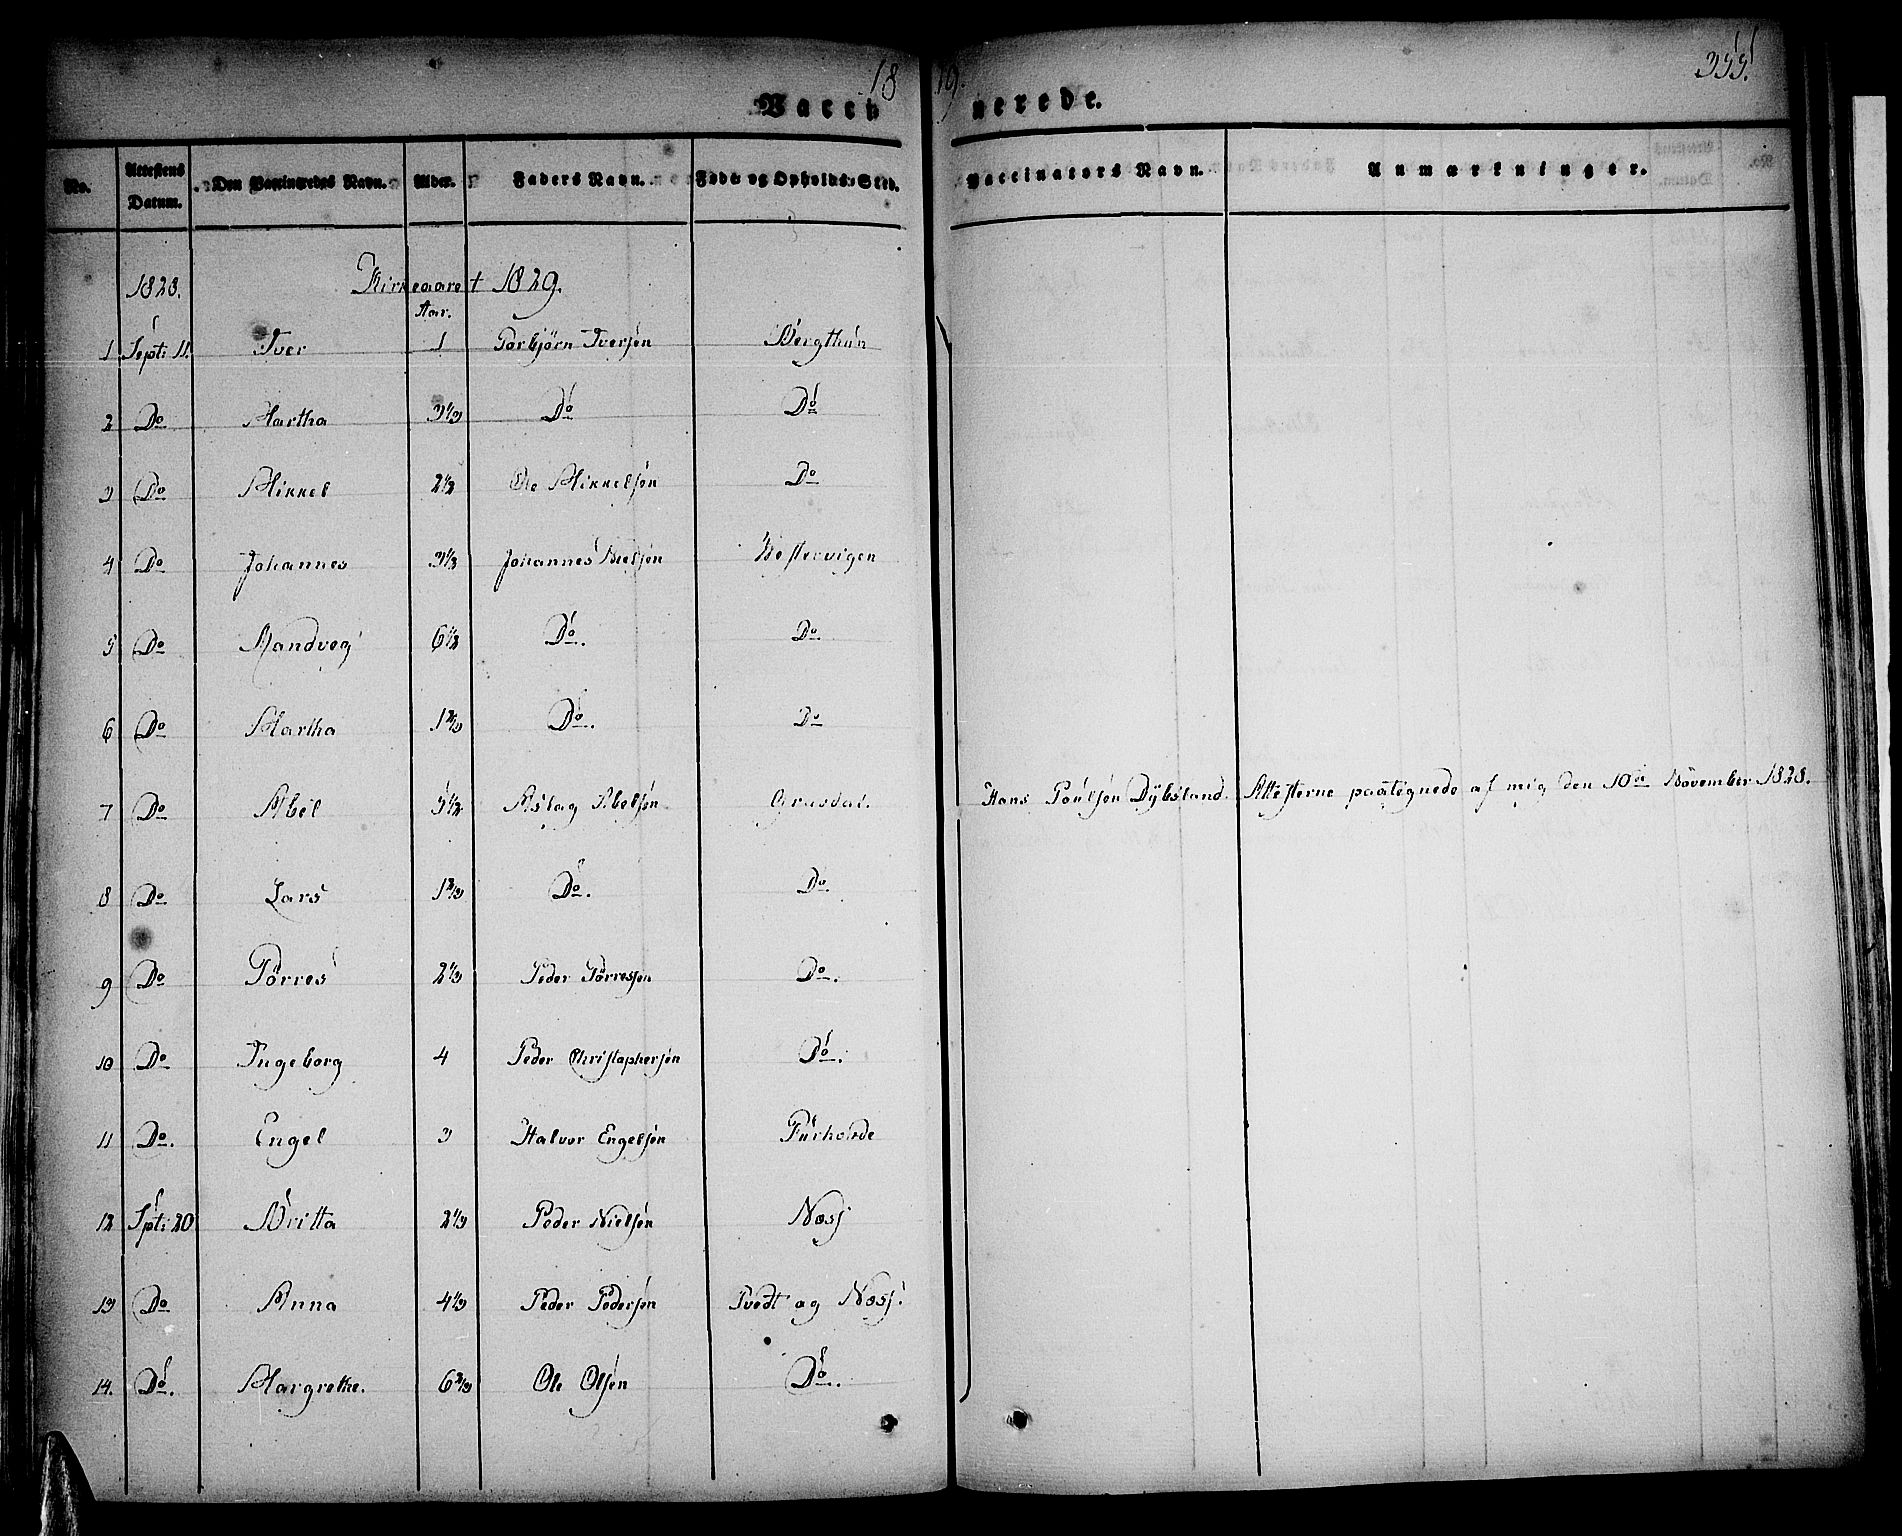 18 19. 355.
Vaccinerede.
No. Attestens Datum. Den Vaccineredes Navn. Alder. Faders Navn. Føde- og Opholds-Sted. Vaccinators Navn. Anmærkninger.
1828. Kirkeaaret 1829.
Aar.
1 Sept: 11. Iver 1 Torbjörn Iversen Bergthun
2 Do Martha 3 1/3 Do Do
3 Do Mikkel 2 1/2 Ole Mikkelsen Do
4 Do Johannes 3 1/3 Johannes Nielsen Vestervigen
5 Do Randveg 6 1/2 Do. Do.
6 Do Martha 1 2/3 Do. Do
7 Do Abel 5 1/2 Aslag Abelsen Grasdal. Hans Poulsen Dybsland. Attesterne paategnede af mig den 10de November 1828.
8 Do Lars 1 2/3 Do. Do.
9 Do Torres 2 1/3 Peder Torressen Do.
10 Do Ingeborg 4 Peder Christophersen Do.
11 Do. Engel 3 Halvor Engelsen Furholde
12 Spt: 20 Britta 2 1/3 Peder Nielsen Næss
13 Do Anna 4 1/3 Peder Pedersen Tvedt og Næss.
14. Do. Margrethe. 6 2/3 Ole Olsen Do.